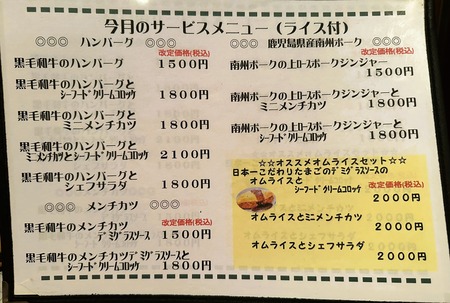 今月のサービスメニュー (ライス付)
○○○ ハンバーグ ○○○
改定価格(税込)
黒毛和牛のハンバーグ 1500円
黒毛和牛のハンバーグと
シーフードクリームコロッケ 1800円
黒毛和牛のハンバーグと
ミニメンチカツ 1800円
黒毛和牛のハンバーグと
ミニメンチカツとシーフードクリームコロッケ 2100円
黒毛和牛のハンバーグと
シェフサラダ 1800円
○○○ メンチカツ ○○○
改定価格(税込)
黒毛和牛のメンチカツ
デミグラスソース 1500円
黒毛和牛のメンチカツデミグラスソースと
シーフードクリームコロッケ 1800円
○○○ 鹿児島県産南州ポーク ○○○
改定価格(税込)
南州ポークの上ロースポークジンジャー
1500円
南州ポークの上ロースポークジンジャーと
ミニメンチカツ 1800円
南州ポークの上ロースポークジンジャーと
シーフードクリームコロッケ 1800円
☆☆オススメオムライスセット☆☆
日本一こだわりたまごのデミグラスソースの
オムライスと
シーフードクリームコロッケ
改定価格(税込)
2000円
オムライスとミニメンチカツ
2000円
オムライスとシェフサラダ
2000円